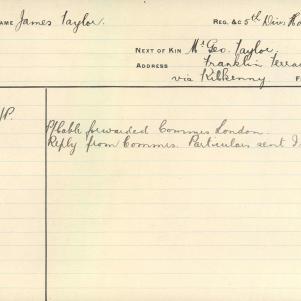 NAME James Taylor. REG. &C 5th Divn
NEXT OF KIN Mr Geo. Taylor.
ADDRESS Franklin Terrac
via Kilkenny. F
P.
Cable forwarded Commrs London.
Reply from Commrs. Particulars sent